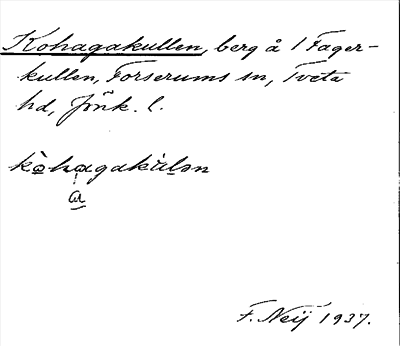 Kohagakullen, berg å 1 Fager-
kullen, Forserums sn, Tveta
hd, Jönk. l.
kòhagakùlən
F. Neij 1937.